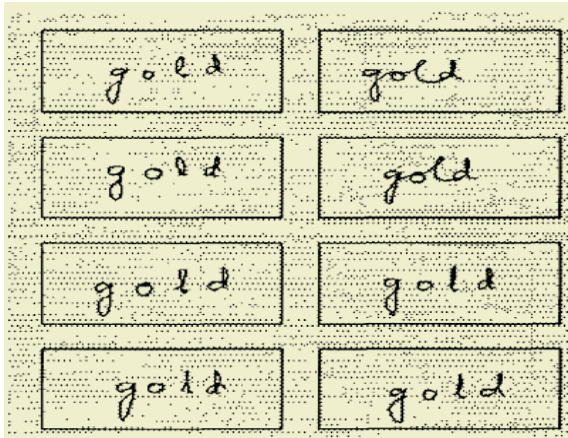 gold gold
gold gold
gold gold
gold gold